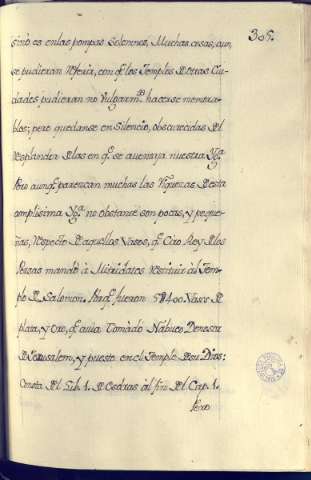 305.
sino es en las pompas solemnes, Muchas cosas, aun
se pudieran referir, con q.e los Templos D otras Ciu-
dades pudieran no Vulgarm.te hacerse memora-
bles; pero quedanse en Silencio, obscurecidas Del
resplandor D las en q.e se aventaja nuestra Yg.a
Pero aunq.e parezcan muchas las riquezas D esta
amplisima Yg.a no obstante son pocas, y peque-
ñas, respecto D aquellos Vasos, q.e Ciro Rey D los
Persas mandò à Miquidates restituir àl Tem-
plo D Salomon. Porq.e fueron 5U400 Vasos D
plata, y oro, q.e avia tomàdo Nabuco Donosor
D Jerusalem, y puesto en el Templo D su Dios:
Consta Del Lib. 1. D Esdras àl fin Del Cap. 1.
Pero